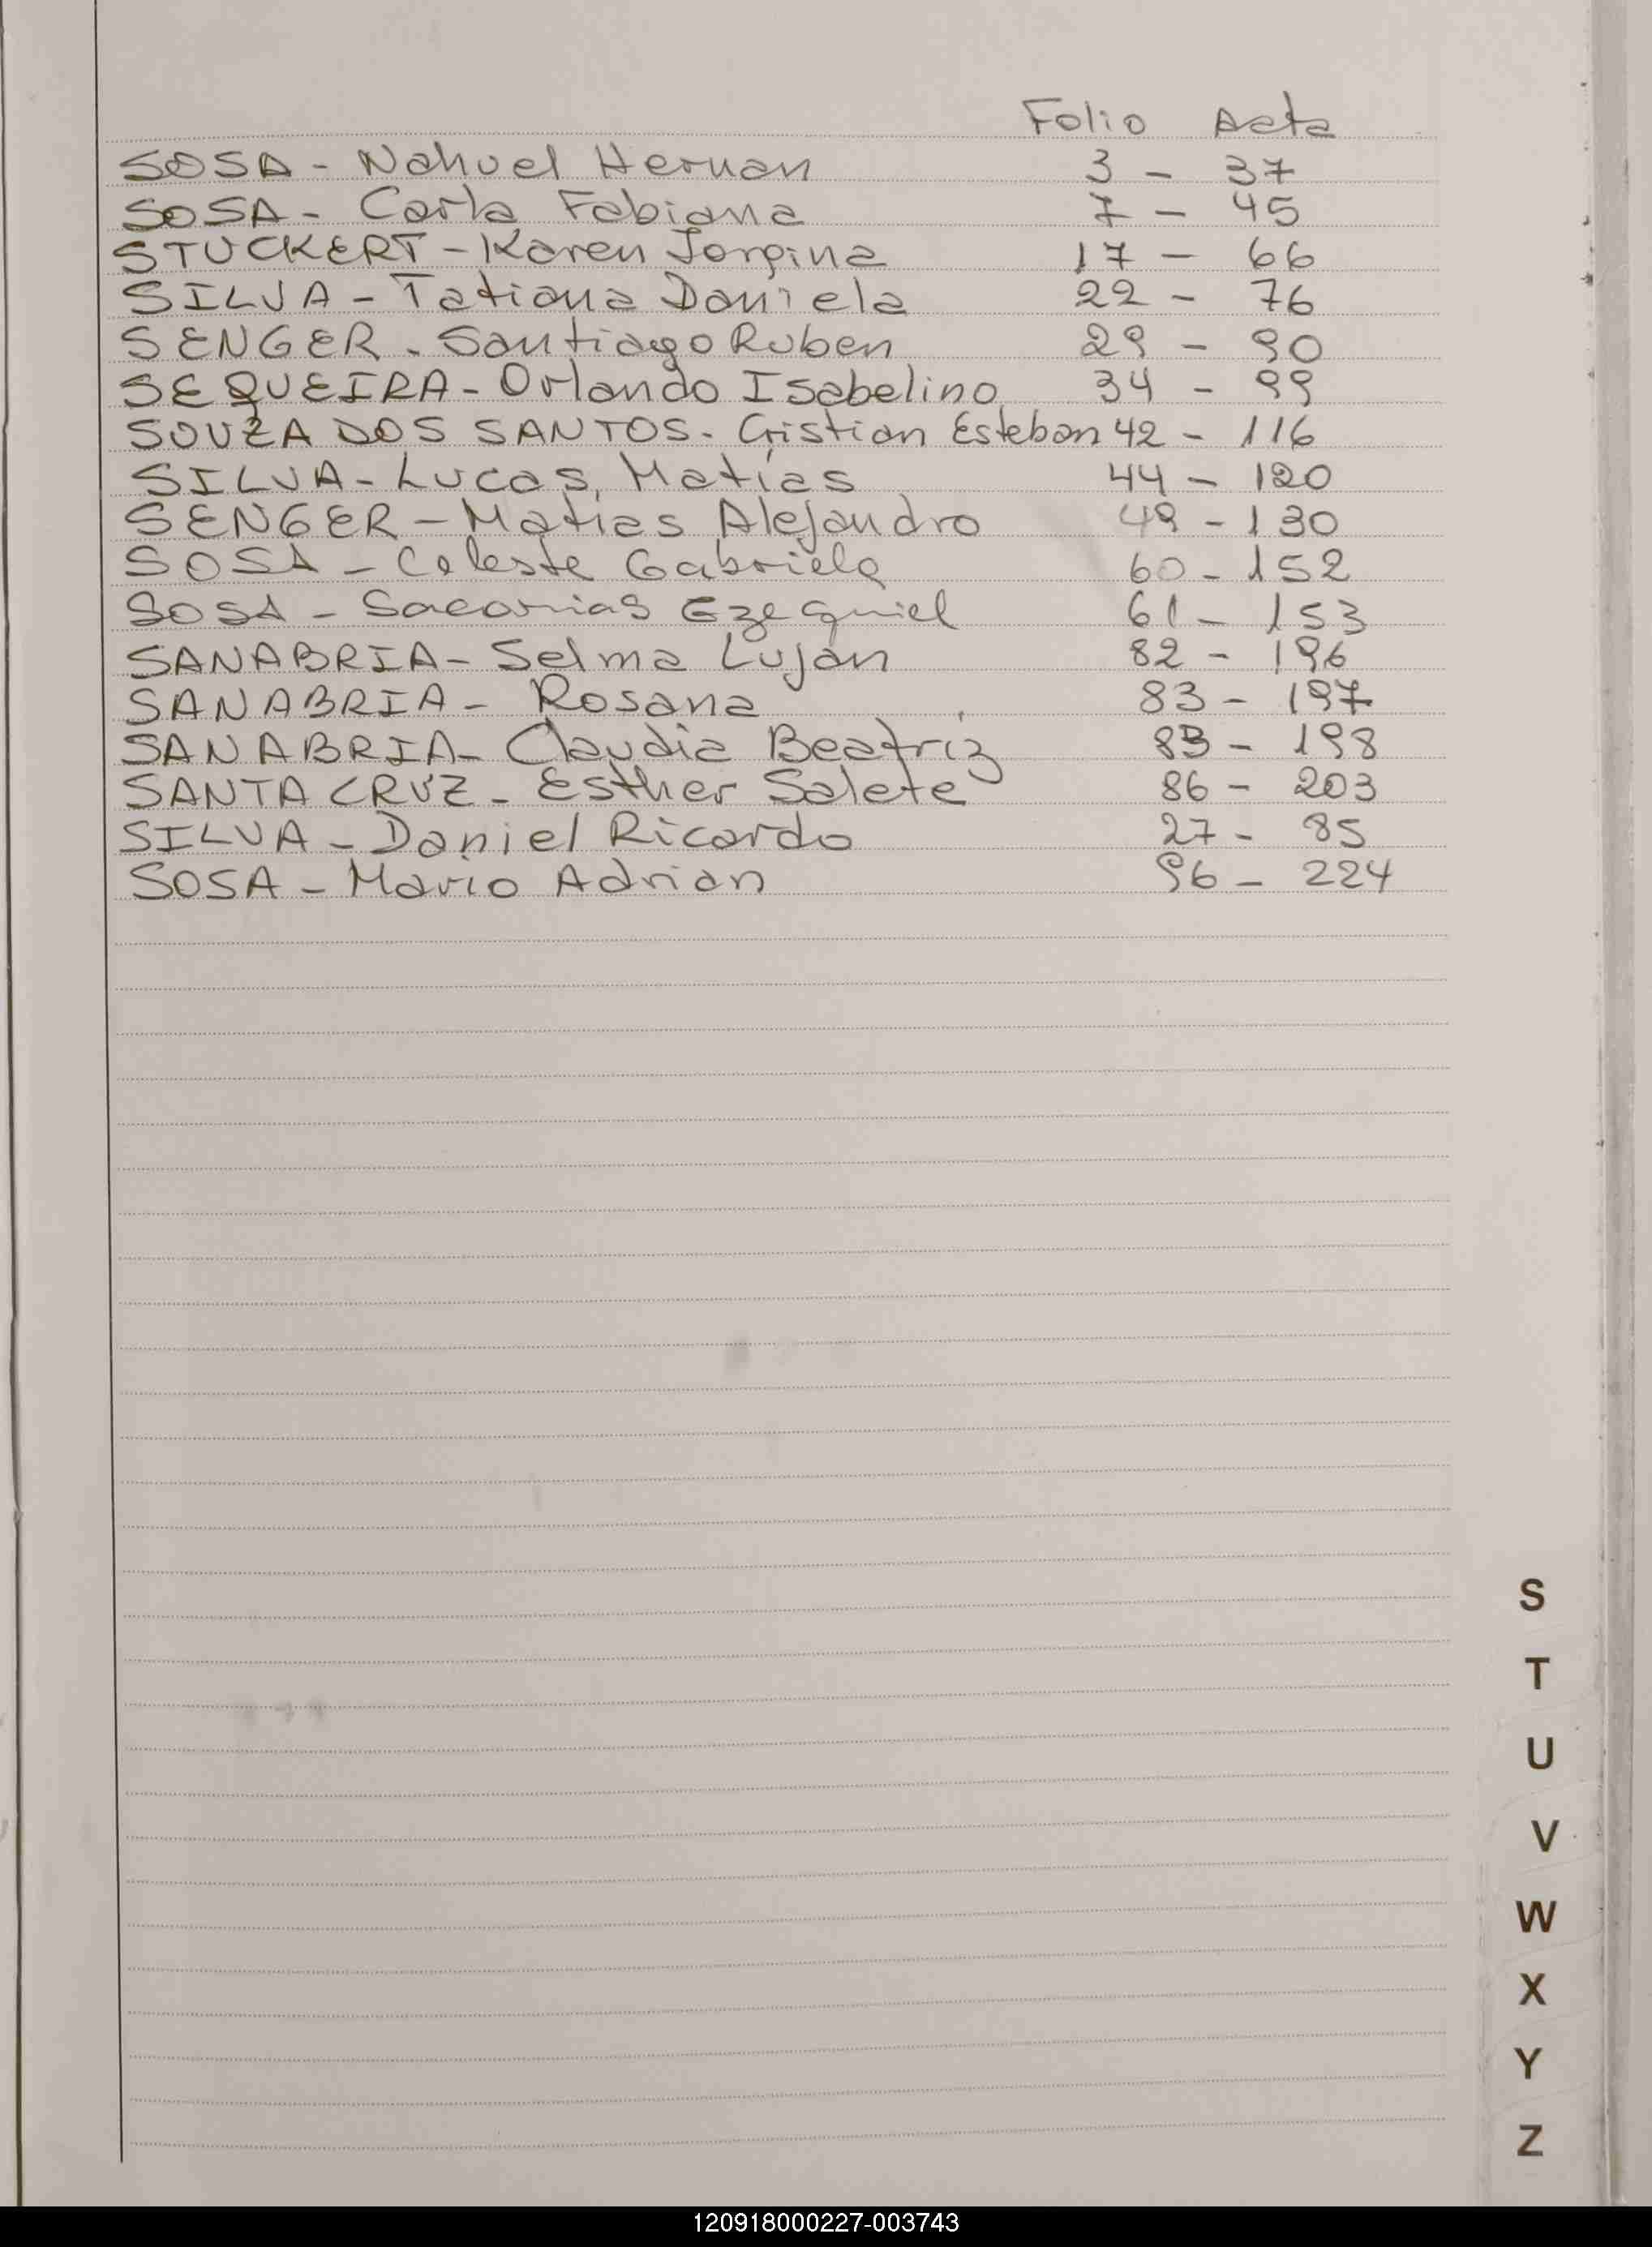 Folio Acta
SOSA - Nahuel Hernan 3 - 37
SOSA - Carla Fabiana 7 - 45
STUCKERT - Karen Jorgina 17 - 66
SILVA - Tatiana Daniela 22 - 76
SENGER - Santiago Ruben 29 - 90
SEQUEIRA - Orlando Isabelino 34 - 99
SOUZA DOS SANTOS - Cristian Esteban 42 - 116
SILVA - Lucas, Matías 44 - 120
SENGER - Matias Alejandro 49 - 130
SOSA - Celeste Gabriela 60 - 152
SOSA - Sacarias Ezequiel 61 - 153
SANABRIA - Selma Luján 82 - 196
SANABRIA - Rosana 83 - 197
SANABRIA - Claudia Beatriz 83 - 198
SANTA CRUZ - Esther Salete 86 - 203
SILVA - Daniel Ricardo 27 - 85
SOSA - Mario Adrian 96 - 224
S
T
U
V
W
X
Y
Z
120918000227-003743